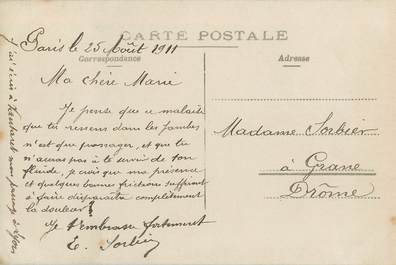 CARTE POSTALE
Correspondance
Adresse
Paris le 25 Août 1911
Ma chère Marie
Je pense que ce malaise
que tu ressens dans les jambes
n'est que passager, et que tu
n'auras pas à te servir de ton
fluide, je crois que ma présence
et quelques bonnes frictions suffiront
à faire disparaître complètement
la douleur?
Je t'embrasse fortement
E. Sorbier
Madame Sorbier
à Grane
Drôme
J'ai écrit à